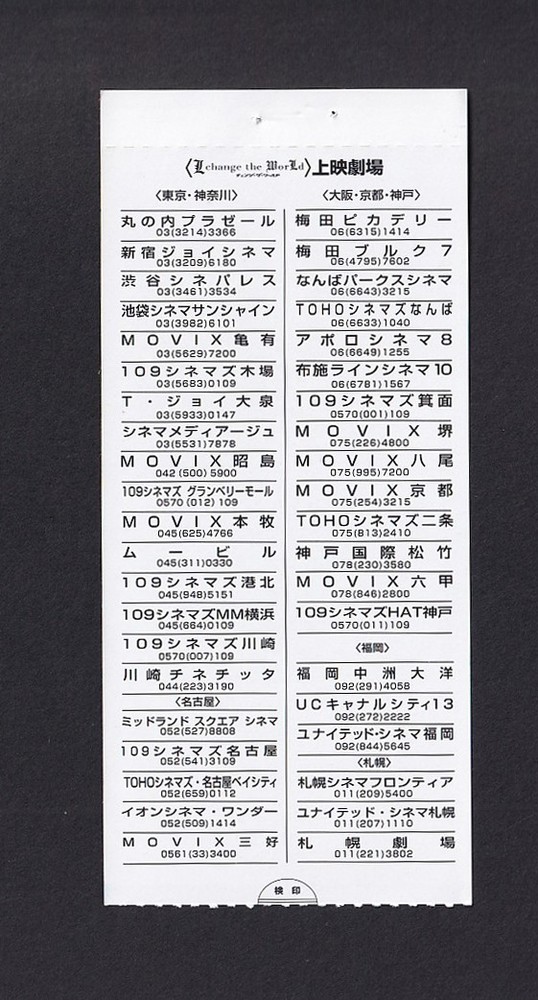 〈L change the WorLd〉上映劇場
〈東京・神奈川〉
丸の内プラゼール
03(3214)3366
新宿ジョイシネマ
03(3209)6180
渋谷シネパレス
03(3461)3534
池袋シネマサンシャイン
03(3982)6101
MOVIX亀有
03(5629)7200
109シネマズ木場
03(5683)0109
T・ジョイ大泉
03(5933)0147
シネマメディアージュ
03(5531)7878
MOVIX昭島
042(500)5900
109シネマズ グランベリーモール
0570(012)109
MOVIX本牧
045(625)4766
ムービル
045(311)0330
109シネマズ港北
045(948)5151
109シネマズMM横浜
045(664)0109
109シネマズ川崎
0570(007)109
川崎チネチッタ
044(223)3190
〈名古屋〉
ミッドランド スクエア シネマ
052(527)8808
109シネマズ名古屋
052(541)3109
TOHOシネマズ・名古屋ベイシティ
052(659)0112
イオンシネマ・ワンダー
052(509)1414
MOVIX三好
0561(33)3400
〈大阪・京都・神戸〉
梅田ピカデリー
06(6315)1414
梅田ブルク7
06(4795)7602
なんばパークスシネマ
06(6643)3215
TOHOシネマズなんば
06(6633)1040
アポロシネマ8
06(6649)1255
布施ラインシネマ10
06(6781)1567
109シネマズ箕面
0570(001)109
MOVIX堺
075(226)4800
MOVIX八尾
075(995)7200
MOVIX京都
075(254)3215
TOHOシネマズ二条
075(813)2410
神戸国際松竹
078(230)3580
MOVIX六甲
078(846)2800
109シネマズHAT神戸
0570(011)109
〈福岡〉
福岡中洲大洋
092(291)4058
UCキャナルシティ13
092(272)2222
ユナイテッド・シネマ福岡
092(844)5645
〈札幌〉
札幌シネマフロンティア
011(209)5400
ユナイテッド・シネマ札幌
011(207)1110
札幌劇場
011(221)3802
検印